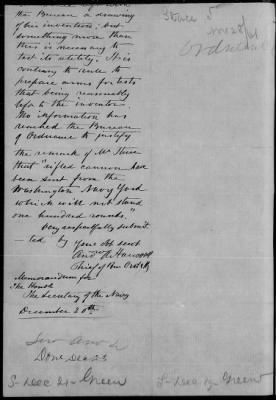 the Bureau a drawing
of his invention, but
something more than
this is necessary to
test its utility. It is
contrary to rule to
prepare arms for tests
that being reasonably
left to the inventor.
No information has
reached the Bureau
of Ordnance to justify
the remark of Mr
that "rifled cannon have
been sent from the
Washington Navy Yard
which will not stand
one hundred rounds."
Very respectfully submit-
-ted by Your obt servt
And A Harwood
Chief of Bu
Memorandum for
The Honble
The Secretary of the Navy
December 20th
Done Dec 23
S- Dec 21- Green
Green